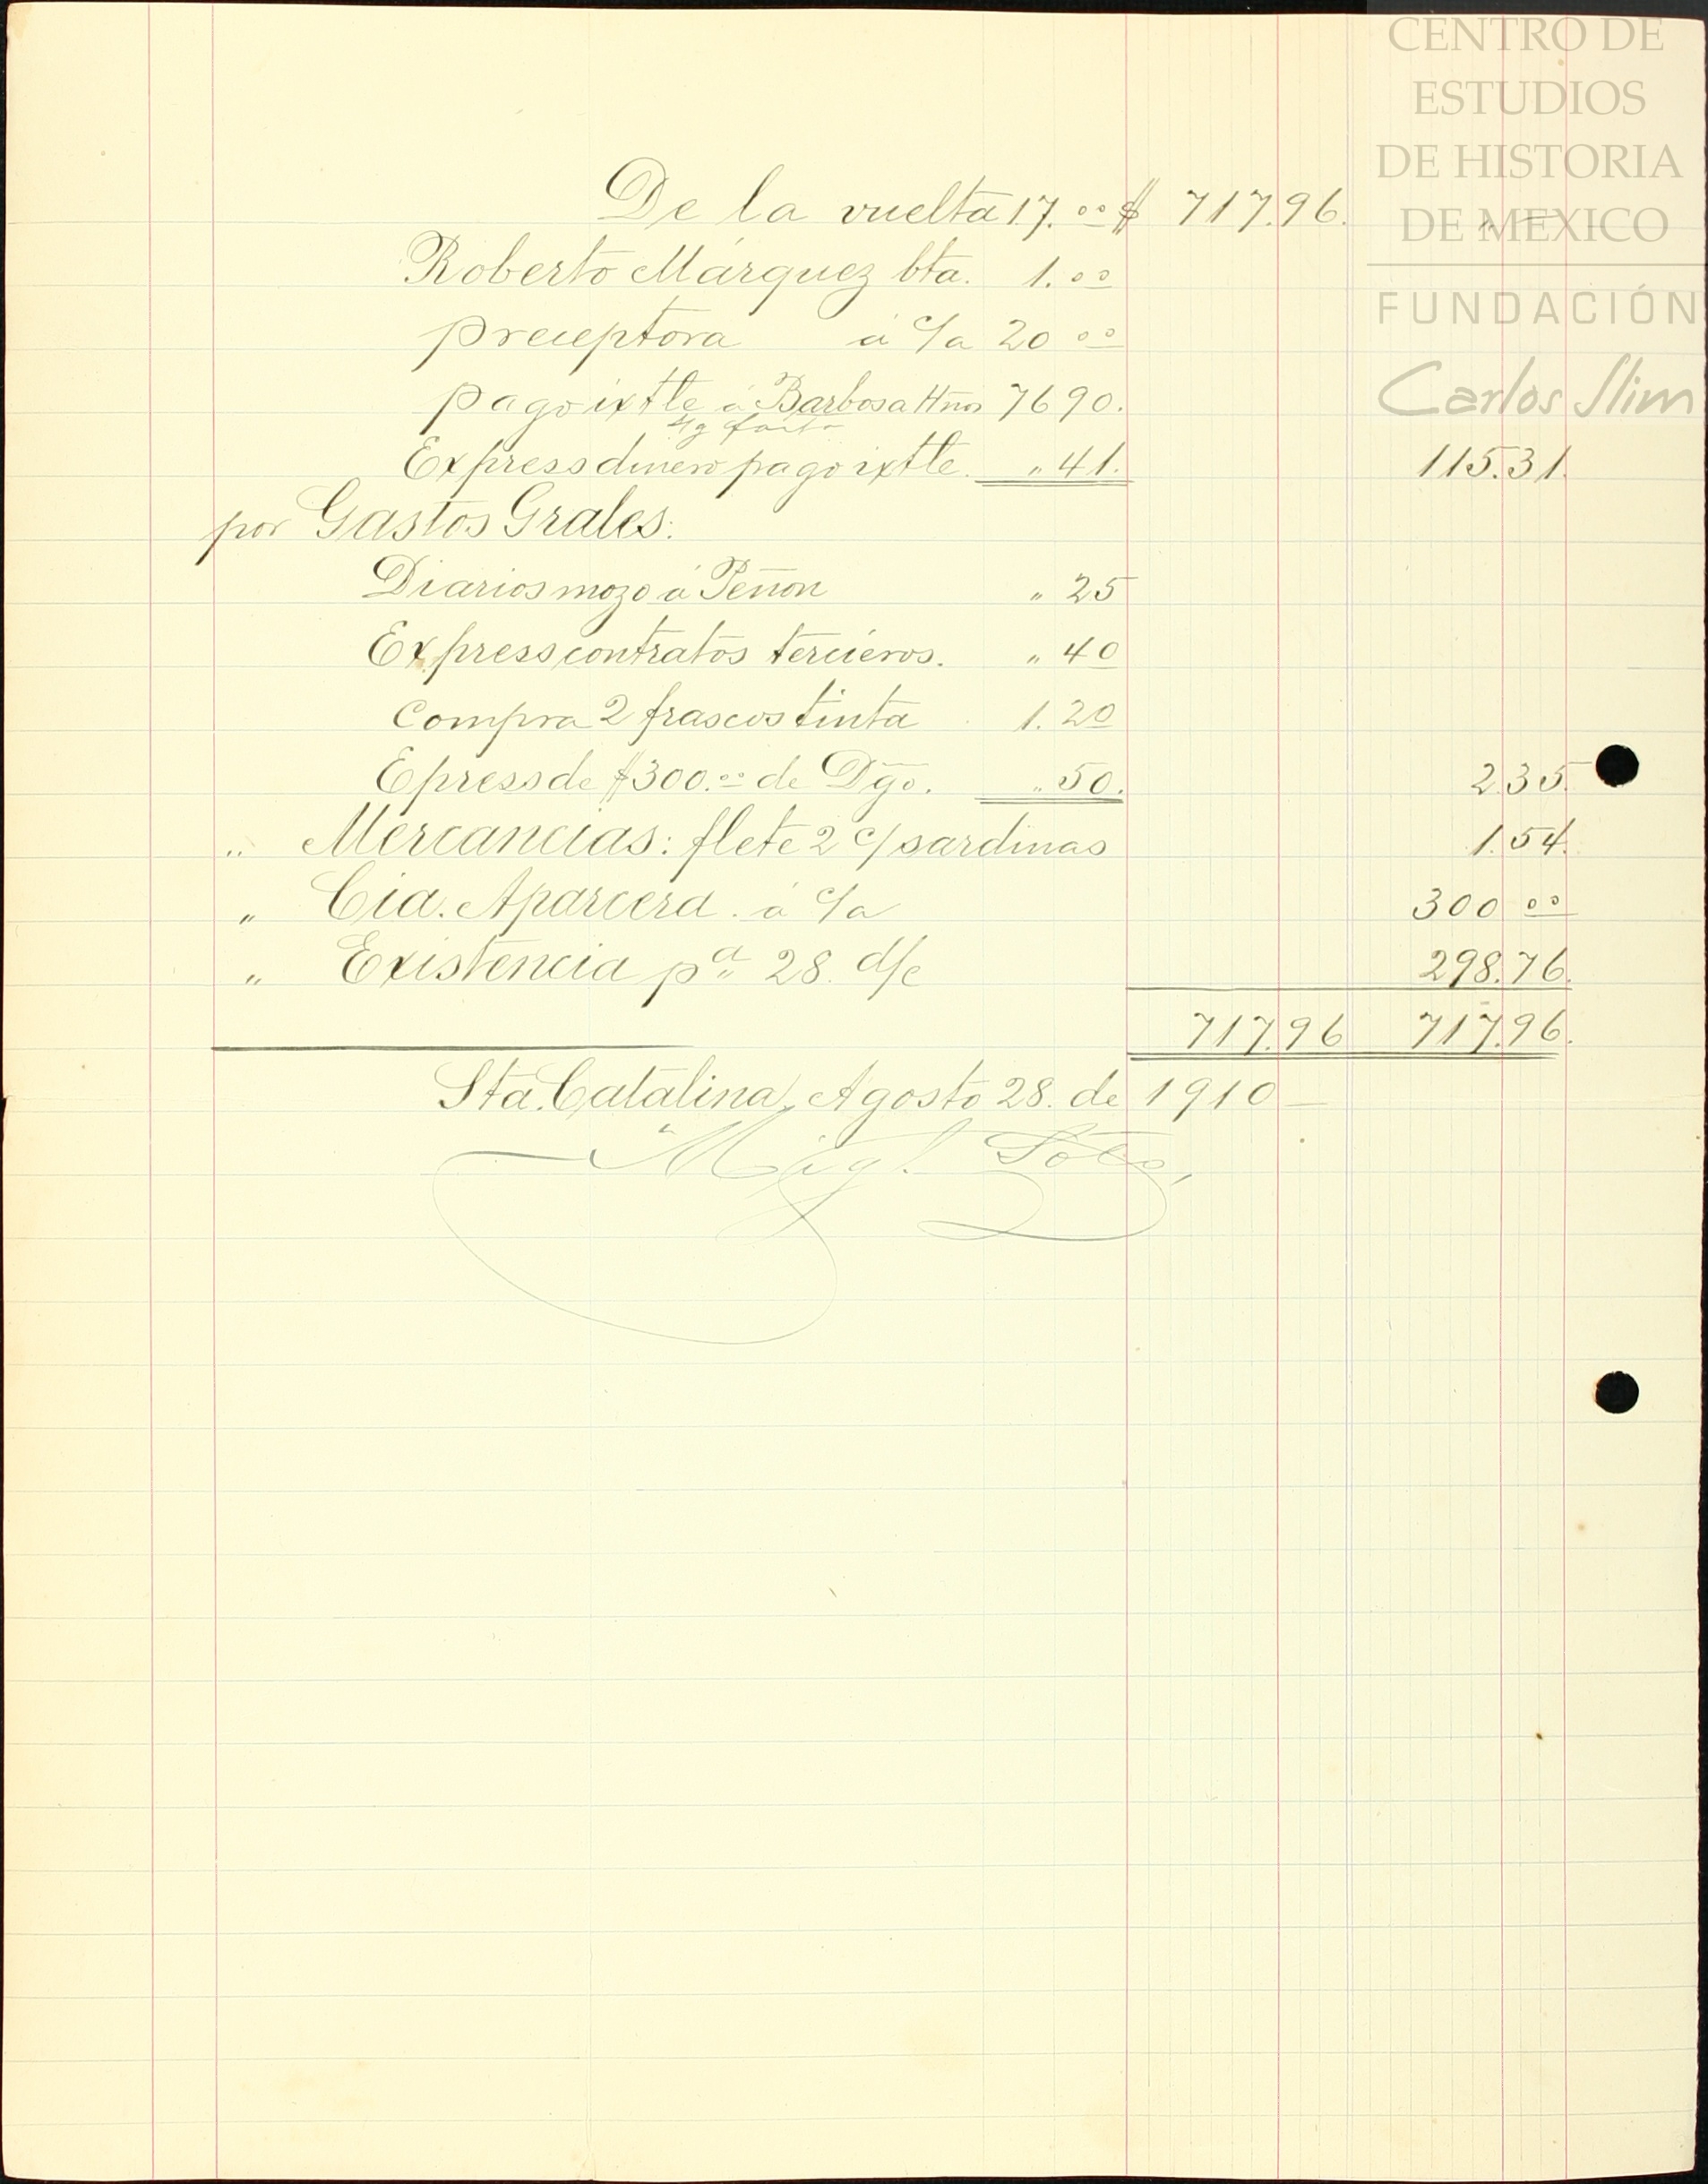 CENTRO DE
ESTUDIOS
DE HISTORIA
DE MEXICO
FUNDACIÓN
Carlos Slim
De la vuelta 17.00 $ 717.96. "
Roberto Márquez bta. 1.00
preceptora á c/a 20 00
pago ixtle á Barbosa Hnos 76 90.
Express dinero pago ixtle. " 41. 115.31.
por Gastos Grales:
Diarios mozo á Peñon " 25
Express contratos tercieros. " 40
Compra 2 frascos tinta 1.20
Epress de $300.00 de Dgo. " 50. 2.35.
" Mercancias: flete 2 c/ sardinas 1.54.
" Cia. Aparcera. á c/a 300 00
" Existencia pa 28. d/c 298.76.
717.96 717.96.
Sta. Catalina, Agosto 28. de 1910
Migl. Soto,